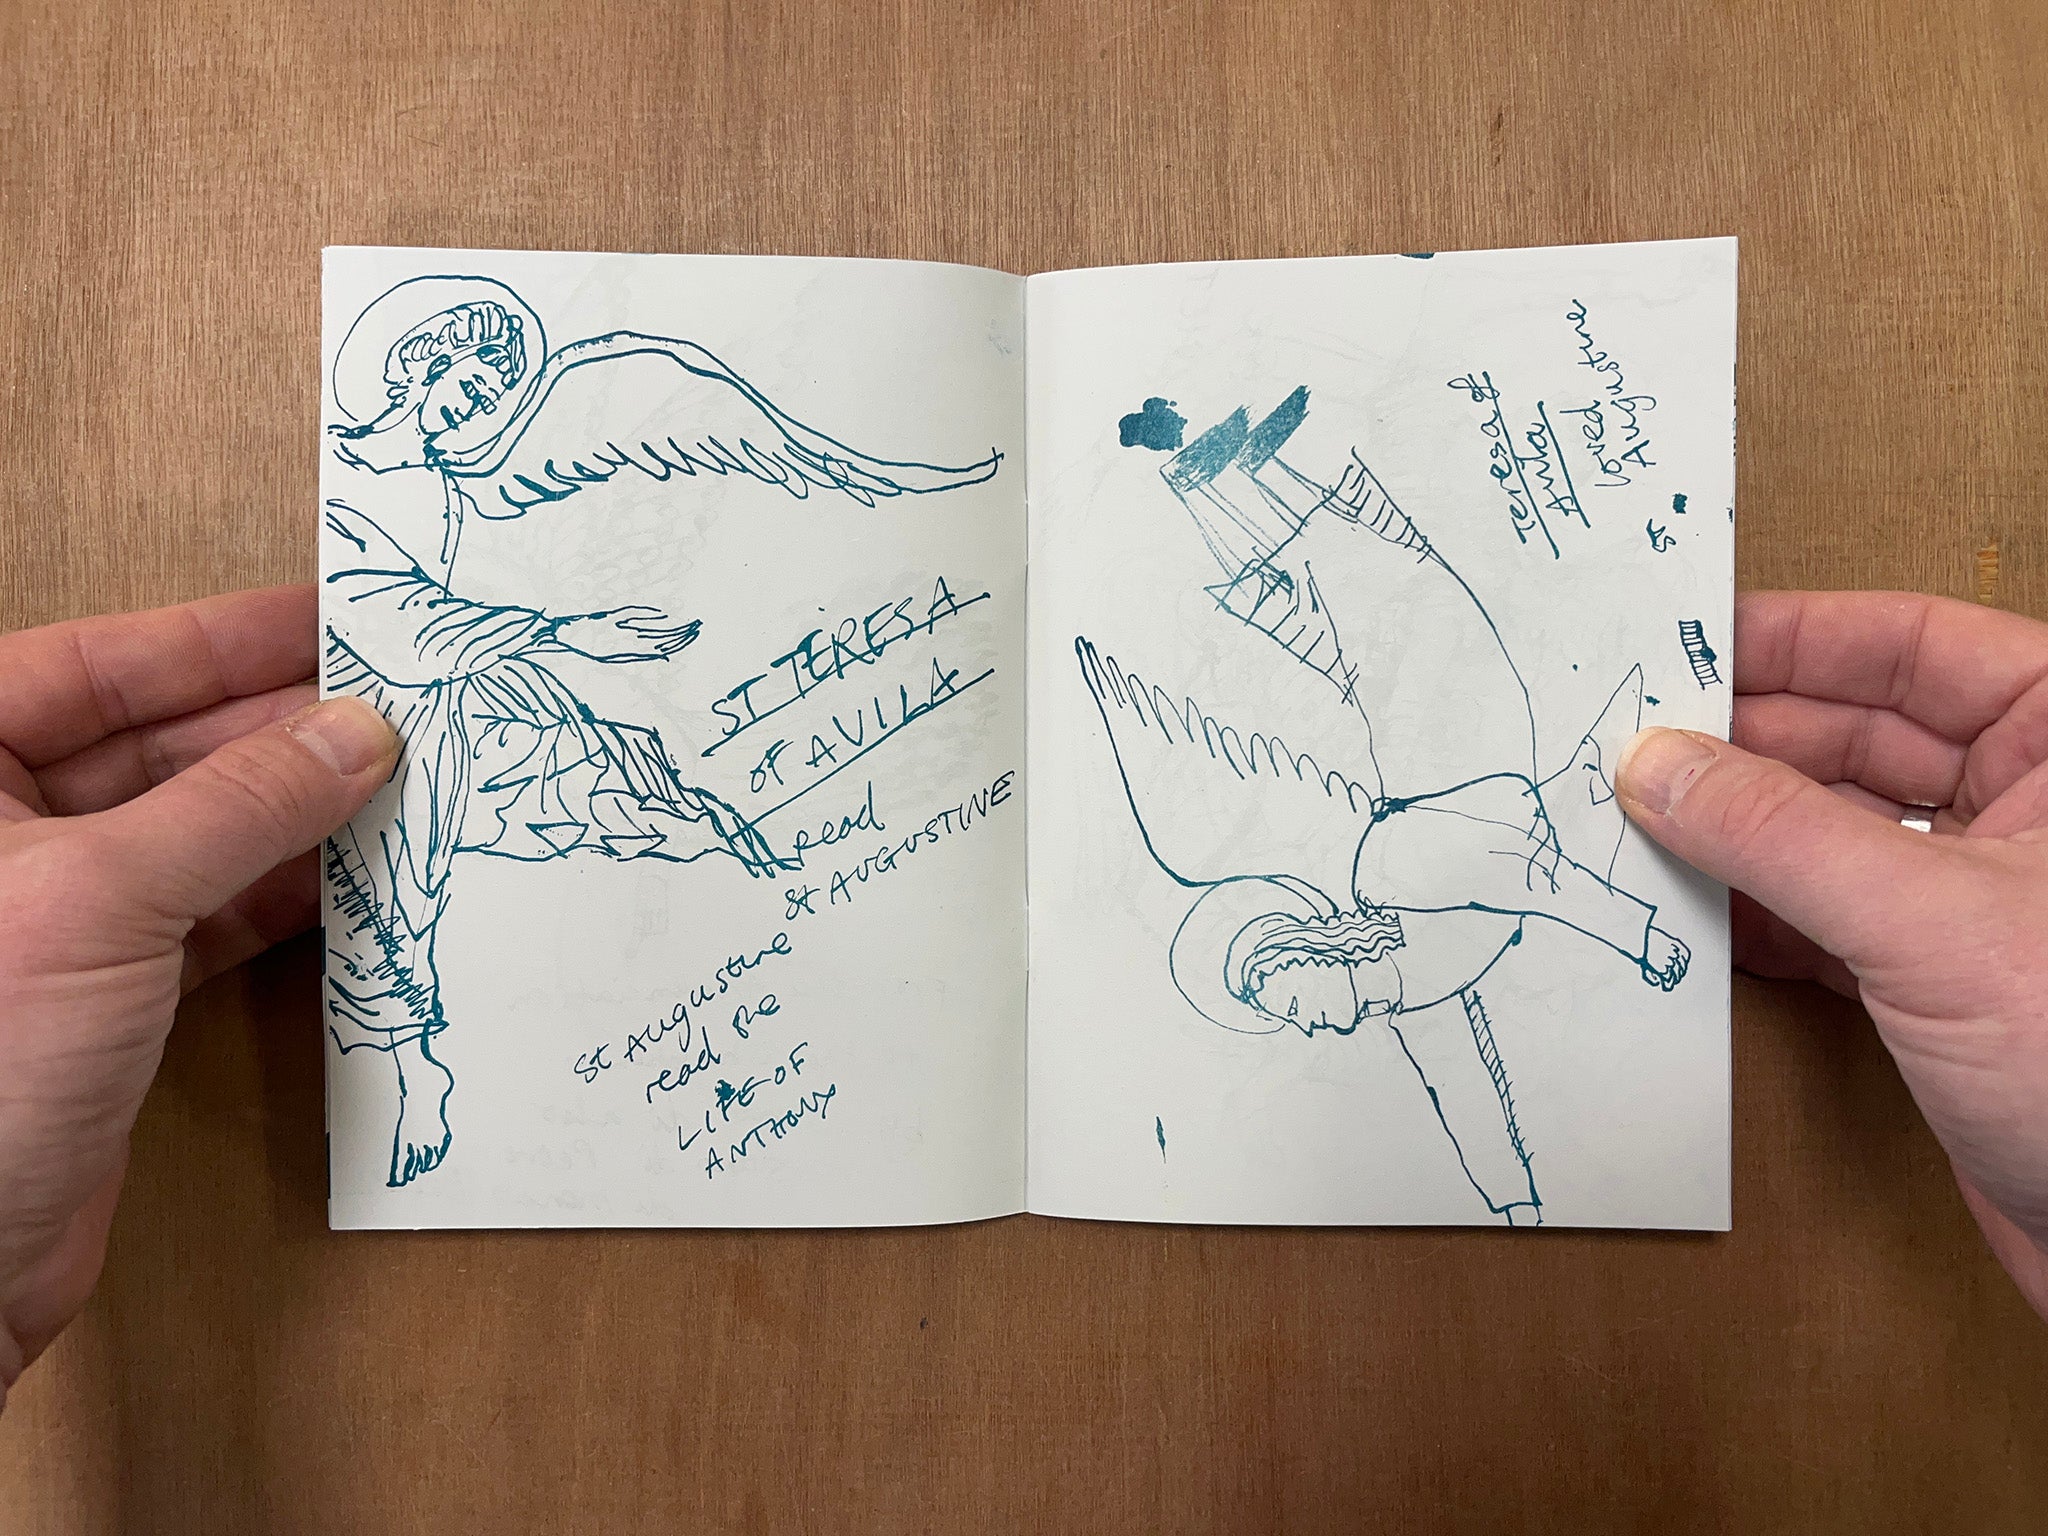 ST TERESA
OF AVILA
read
St AUGUSTINE
St Augustine
read the
LIFE OF
ANTHONY
Teresa of
Avila
loved
Augustine
St